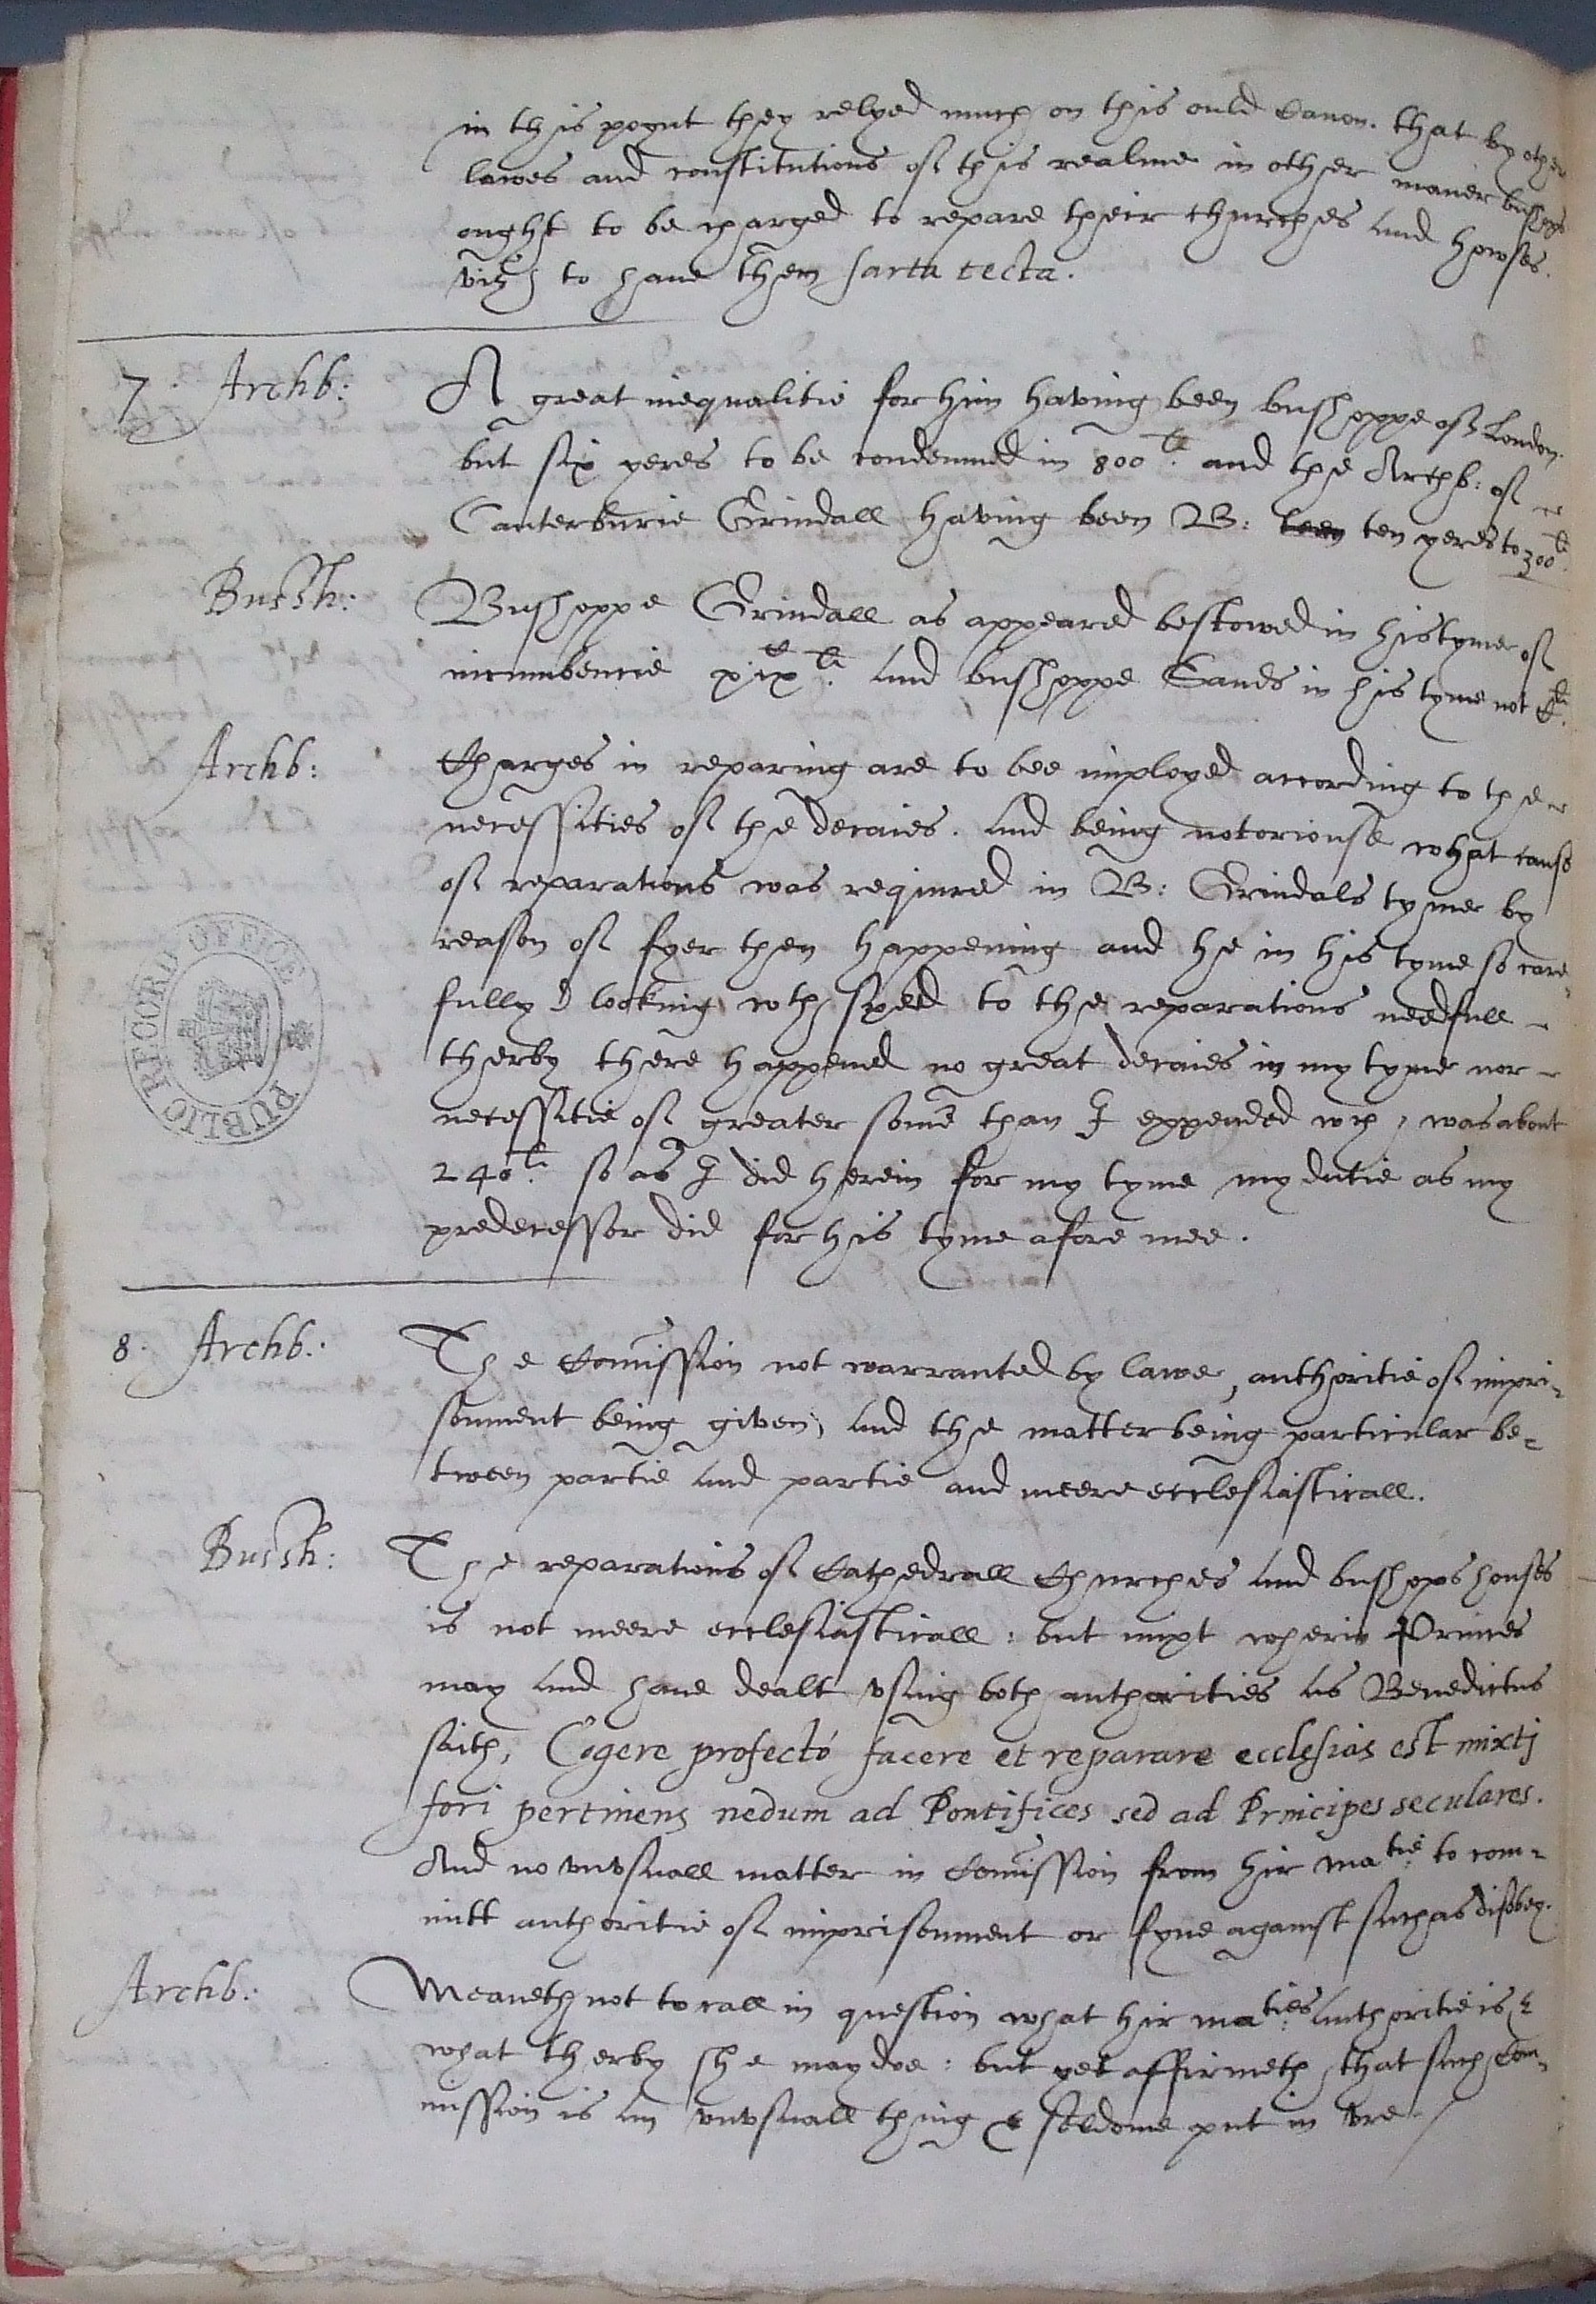 in this poynt they relyed much on this ould Canon. that by other
lawes and constitutions of this realme in other maner bushops
ought to be charged to repare their churches and howses.
vizt to haue them sarta tecta.
7. Archb: A great inequalitie for him having been bushoppe of London
but six yeres to be condemned in 800li. and the Archb: of
Canterburie Grindall having been B: been ten yeres to 300li.
Bussh: Bushoppe Grindall as appeared bestowed in his tyme of
incumbencie and bushoppe Sands in his tyme not
Archb: Charges in reparing are to bee imployed according to the
necessities of the decaies. and being notoriouse what cause
of reparations was required in B: Grindals tyme by
reason of fyer then happening and he in his tyme so care-
fully looking wth speed to the reparations needfull
therby there happened no great decaies in my tyme nor
necessitie of greater some than I expended wch, was about
240li. so as I did herein for my tyme my dutie as my
predecessor did for his tyme afore mee.
8. Archb: The Comission not warranted by lawe, authoritie of impri-
sonment being given, and the matter being particular be-
tween partie and partie and meere ecclesiasticall.
Bussh: The reparations of Cathedrall Churches and bushops houses
is not meere ecclesiasticall: but mixt wherin Princes
may and haue dealt vsing both authorities as Benedictus
saith, Cogere profectó facere et reparare ecclesias est mixtj
fori pertinens nedum ad Pontifices sed ad Principes seculares.
And no vnvsuall matter in Comission from hir matie. to com-
mitt authoritie of imprisonment or fyne against such as disobey.
Archb: Meaneth not to call in question what hir maties. authoritie is &
what therby she may doe: but yet affirmeth, that such com-
mission is an vnvsuall thing & seldome put in vre.
PUBLIC RECORD OFFICE